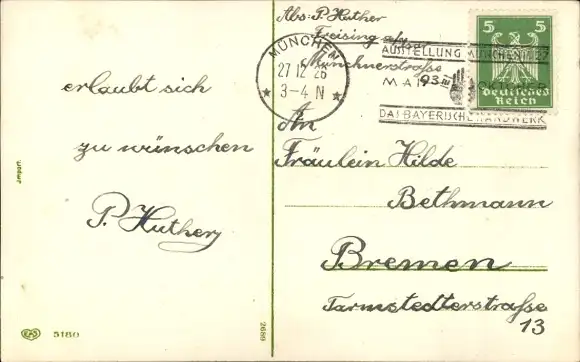 Abs: P. Huther
Freising a/Isar
Münchnerstraße
93
MÜNCHEN
27 12 26
3-4 N
AUSSTELLUNG MÜNCHEN 1927
MAI OKTOBER
DAS BAYERISCHE HANDWERK
5 5
Deutsches
Reich
erlaubt sich
zu wünschen
P. Huther
An
Fräulein Hilde
Bethmann
Bremen
Tarmstedterstraße
13
Import.
EAS 5180
2689